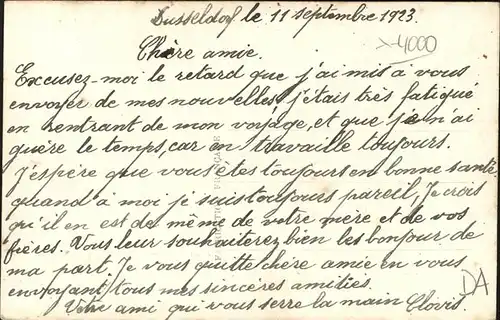 Dusseldorf le 11 septembre 1923.
4000
Chère amie.
Excusez-moi le retard que j'ai mis à vous
envoyer de mes nouvelles, j'étais très fatigué
en rentrant de mon voyage, et que je n'ai
guère le temps, car en travaille toujours.
J'espère que vous êtes toujours en bonne santé
quand à moi je suis toujours pareil, Je crois
qu'il en est de même de votre mère et de vos
frères. Vous leur souhaiterez bien les bonjour de
ma part. Je vous quitte chère amie en vous
envoyant tous mes sincères amitiés.
DA
Votre ami qui vous serre la main Clovis.